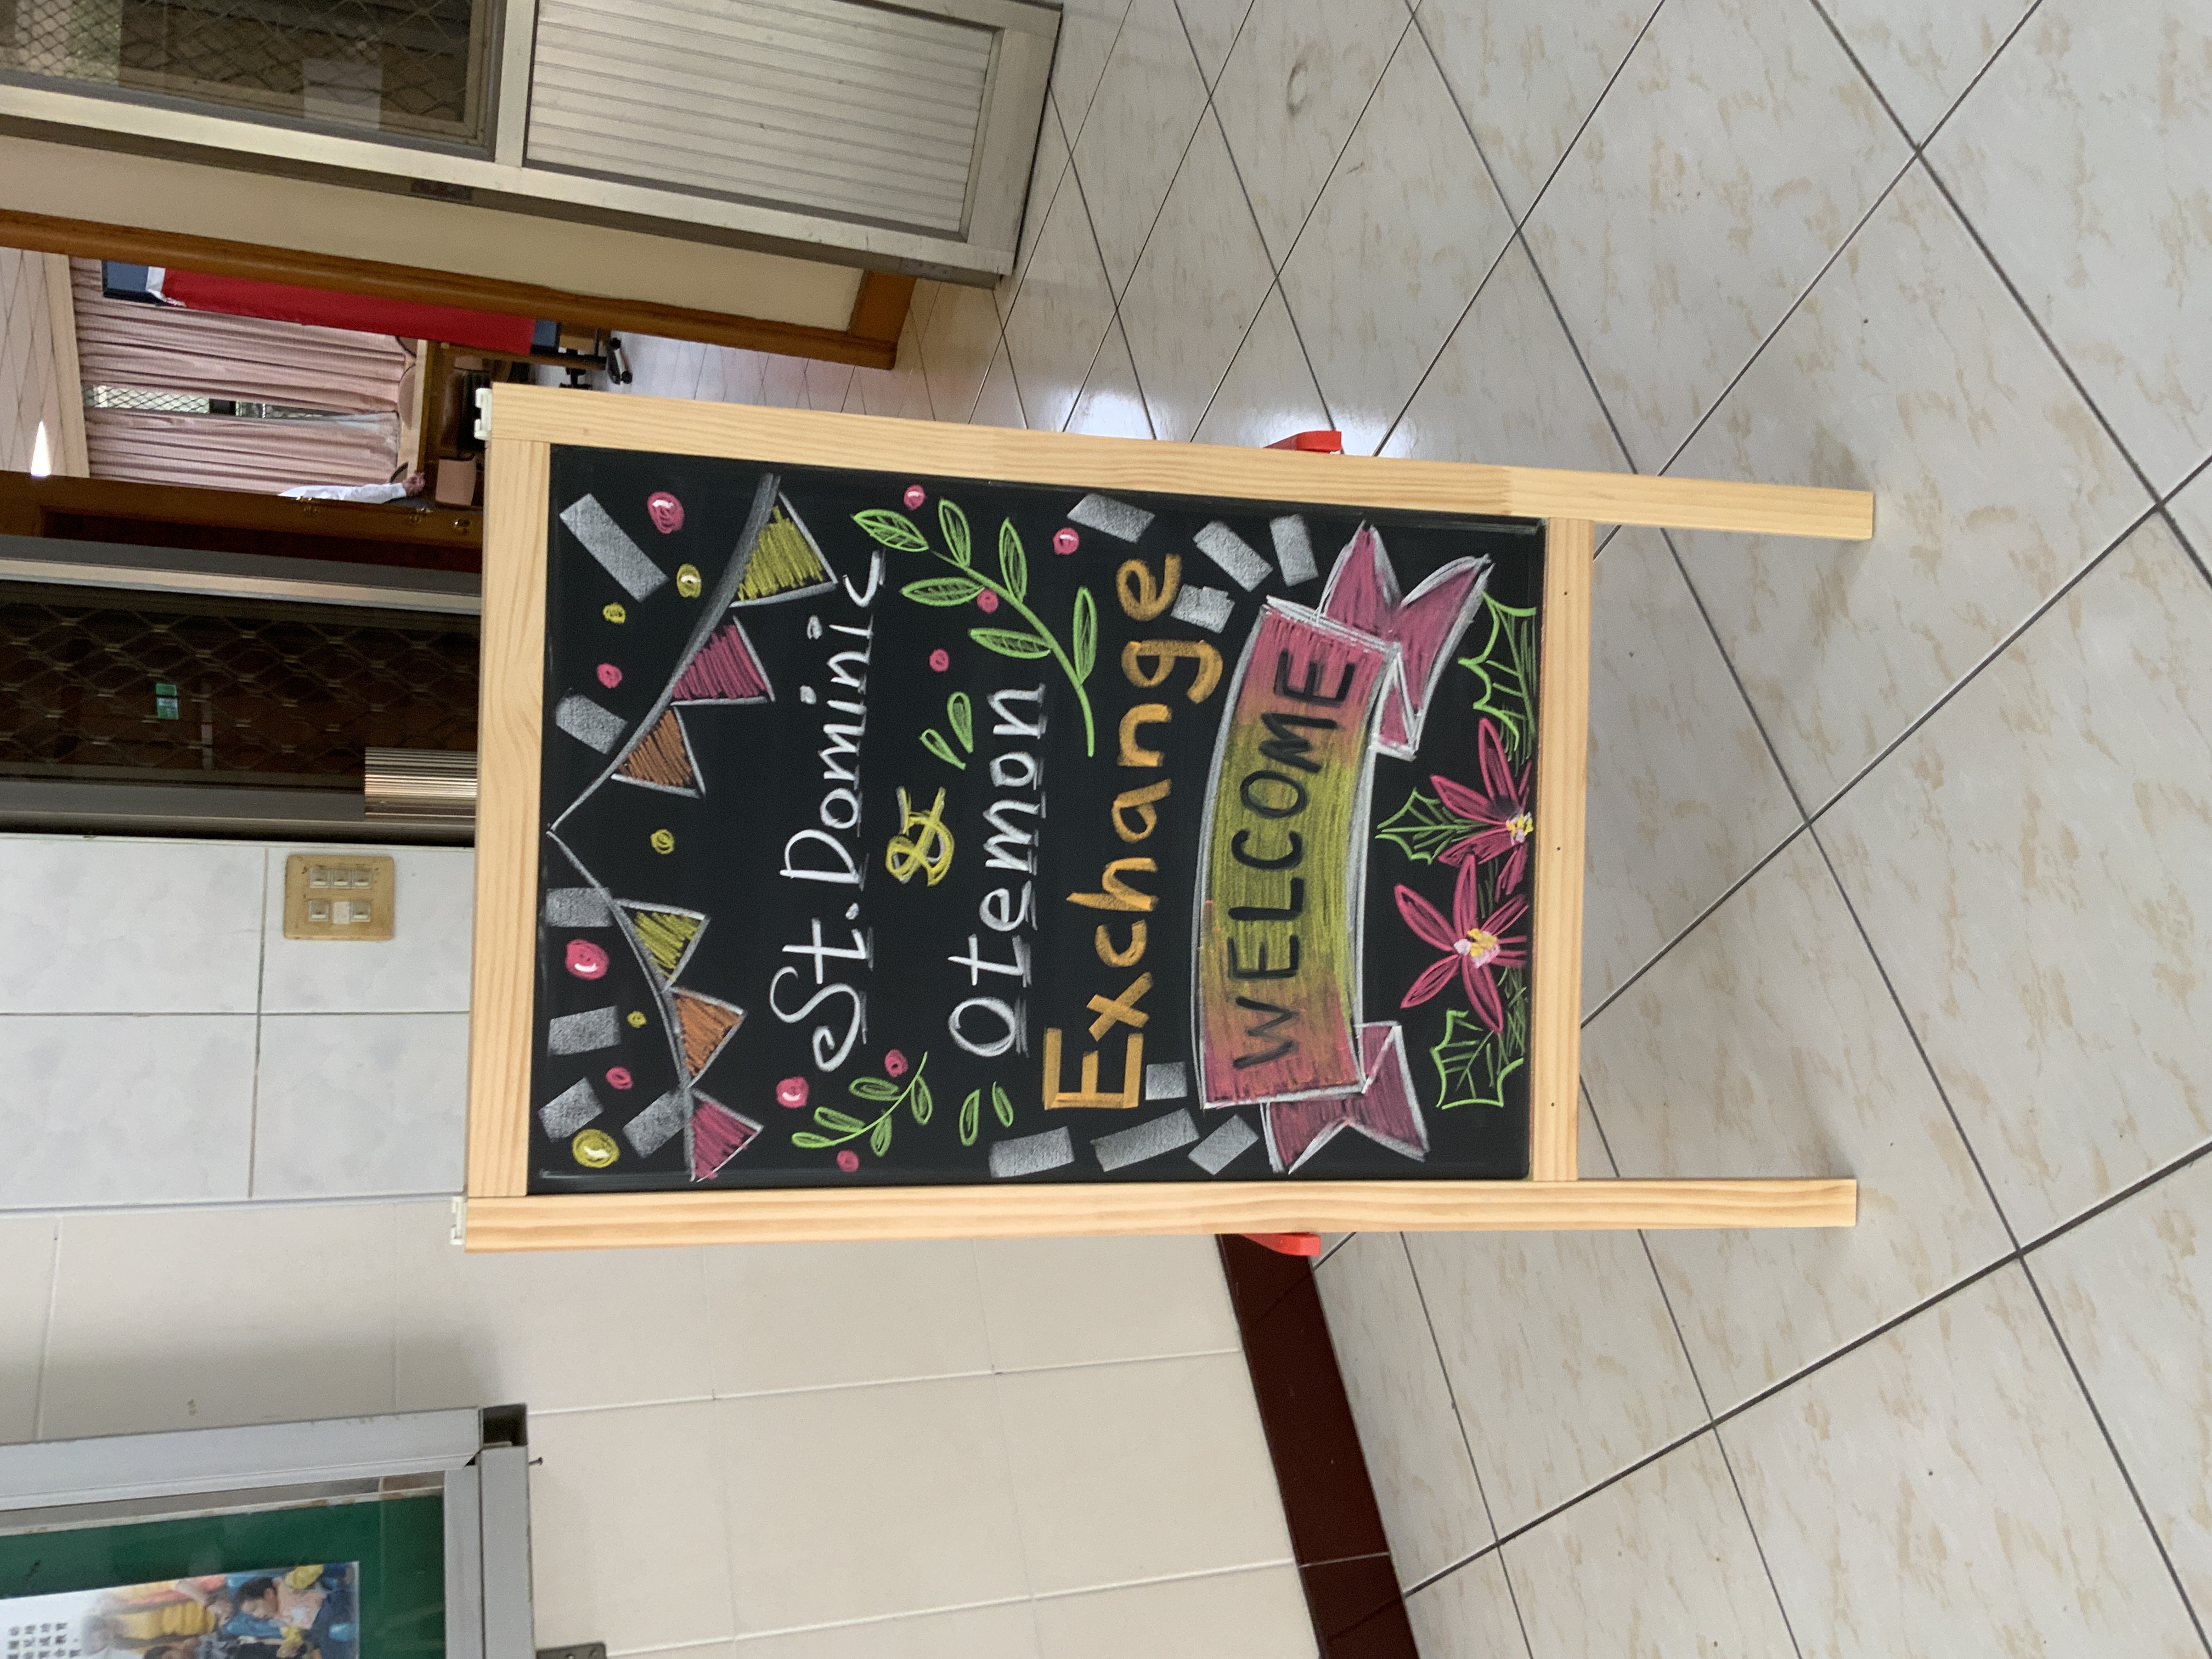 St. Dominic
&
Otemon
Exchange
WELCOME